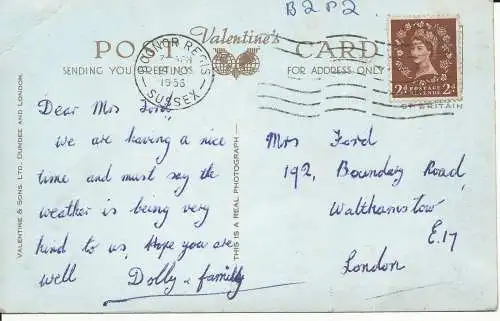 B2P2
POST Valentine's CARD
SENDING YOU GREETINGS
FOR ADDRESS ONLY
BOGNOR REGIS
1956
SUSSEX
2d POSTAGE REVENUE 2d
OF BRITAIN
VALENTINE & SONS. LTD. DUNDEE AND LONDON.
THIS IS A REAL PHOTOGRAPH
Dear Mrs Ford
We are having a nice
time and must say the
weather is being very
kind to us. Hope you are
well Dolly + family
Mrs Ford
192, Boundary Road
Walthamstow
E.17
London